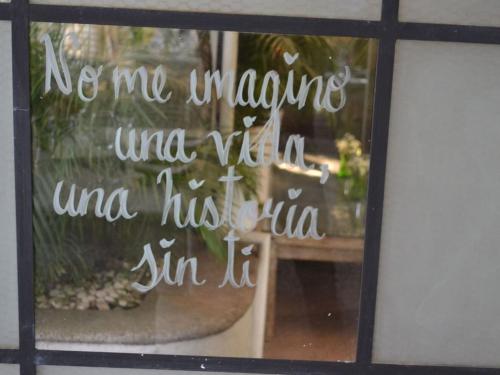 No me imagino
una vida,
una historia
sin ti